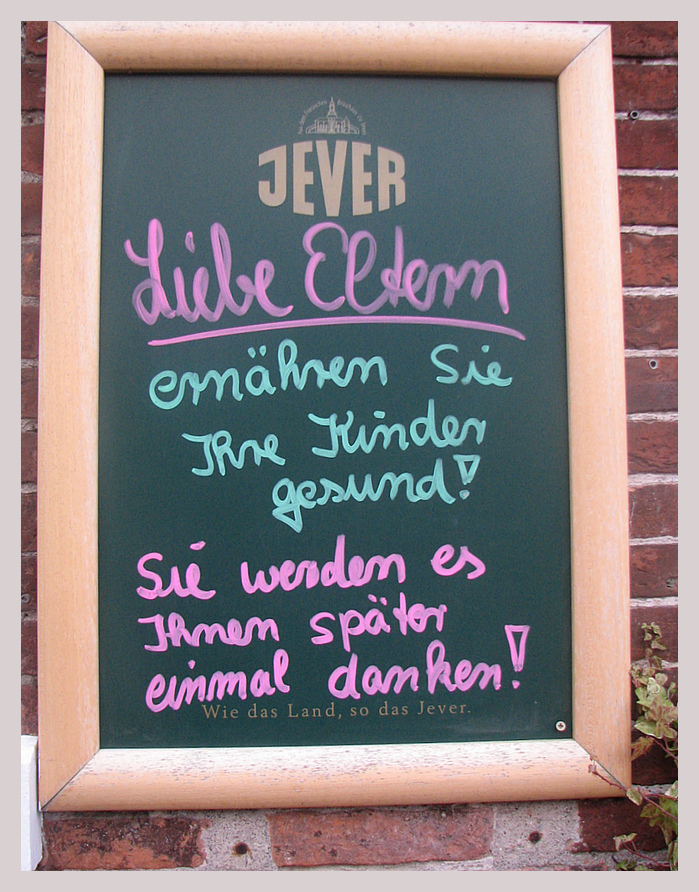 JEVER
Liebe Eltern
ernähren Sie
Ihre Kinder
gesund!
Sie werden es
Ihnen später
einmal danken!
Wie das Land, so das Jever.